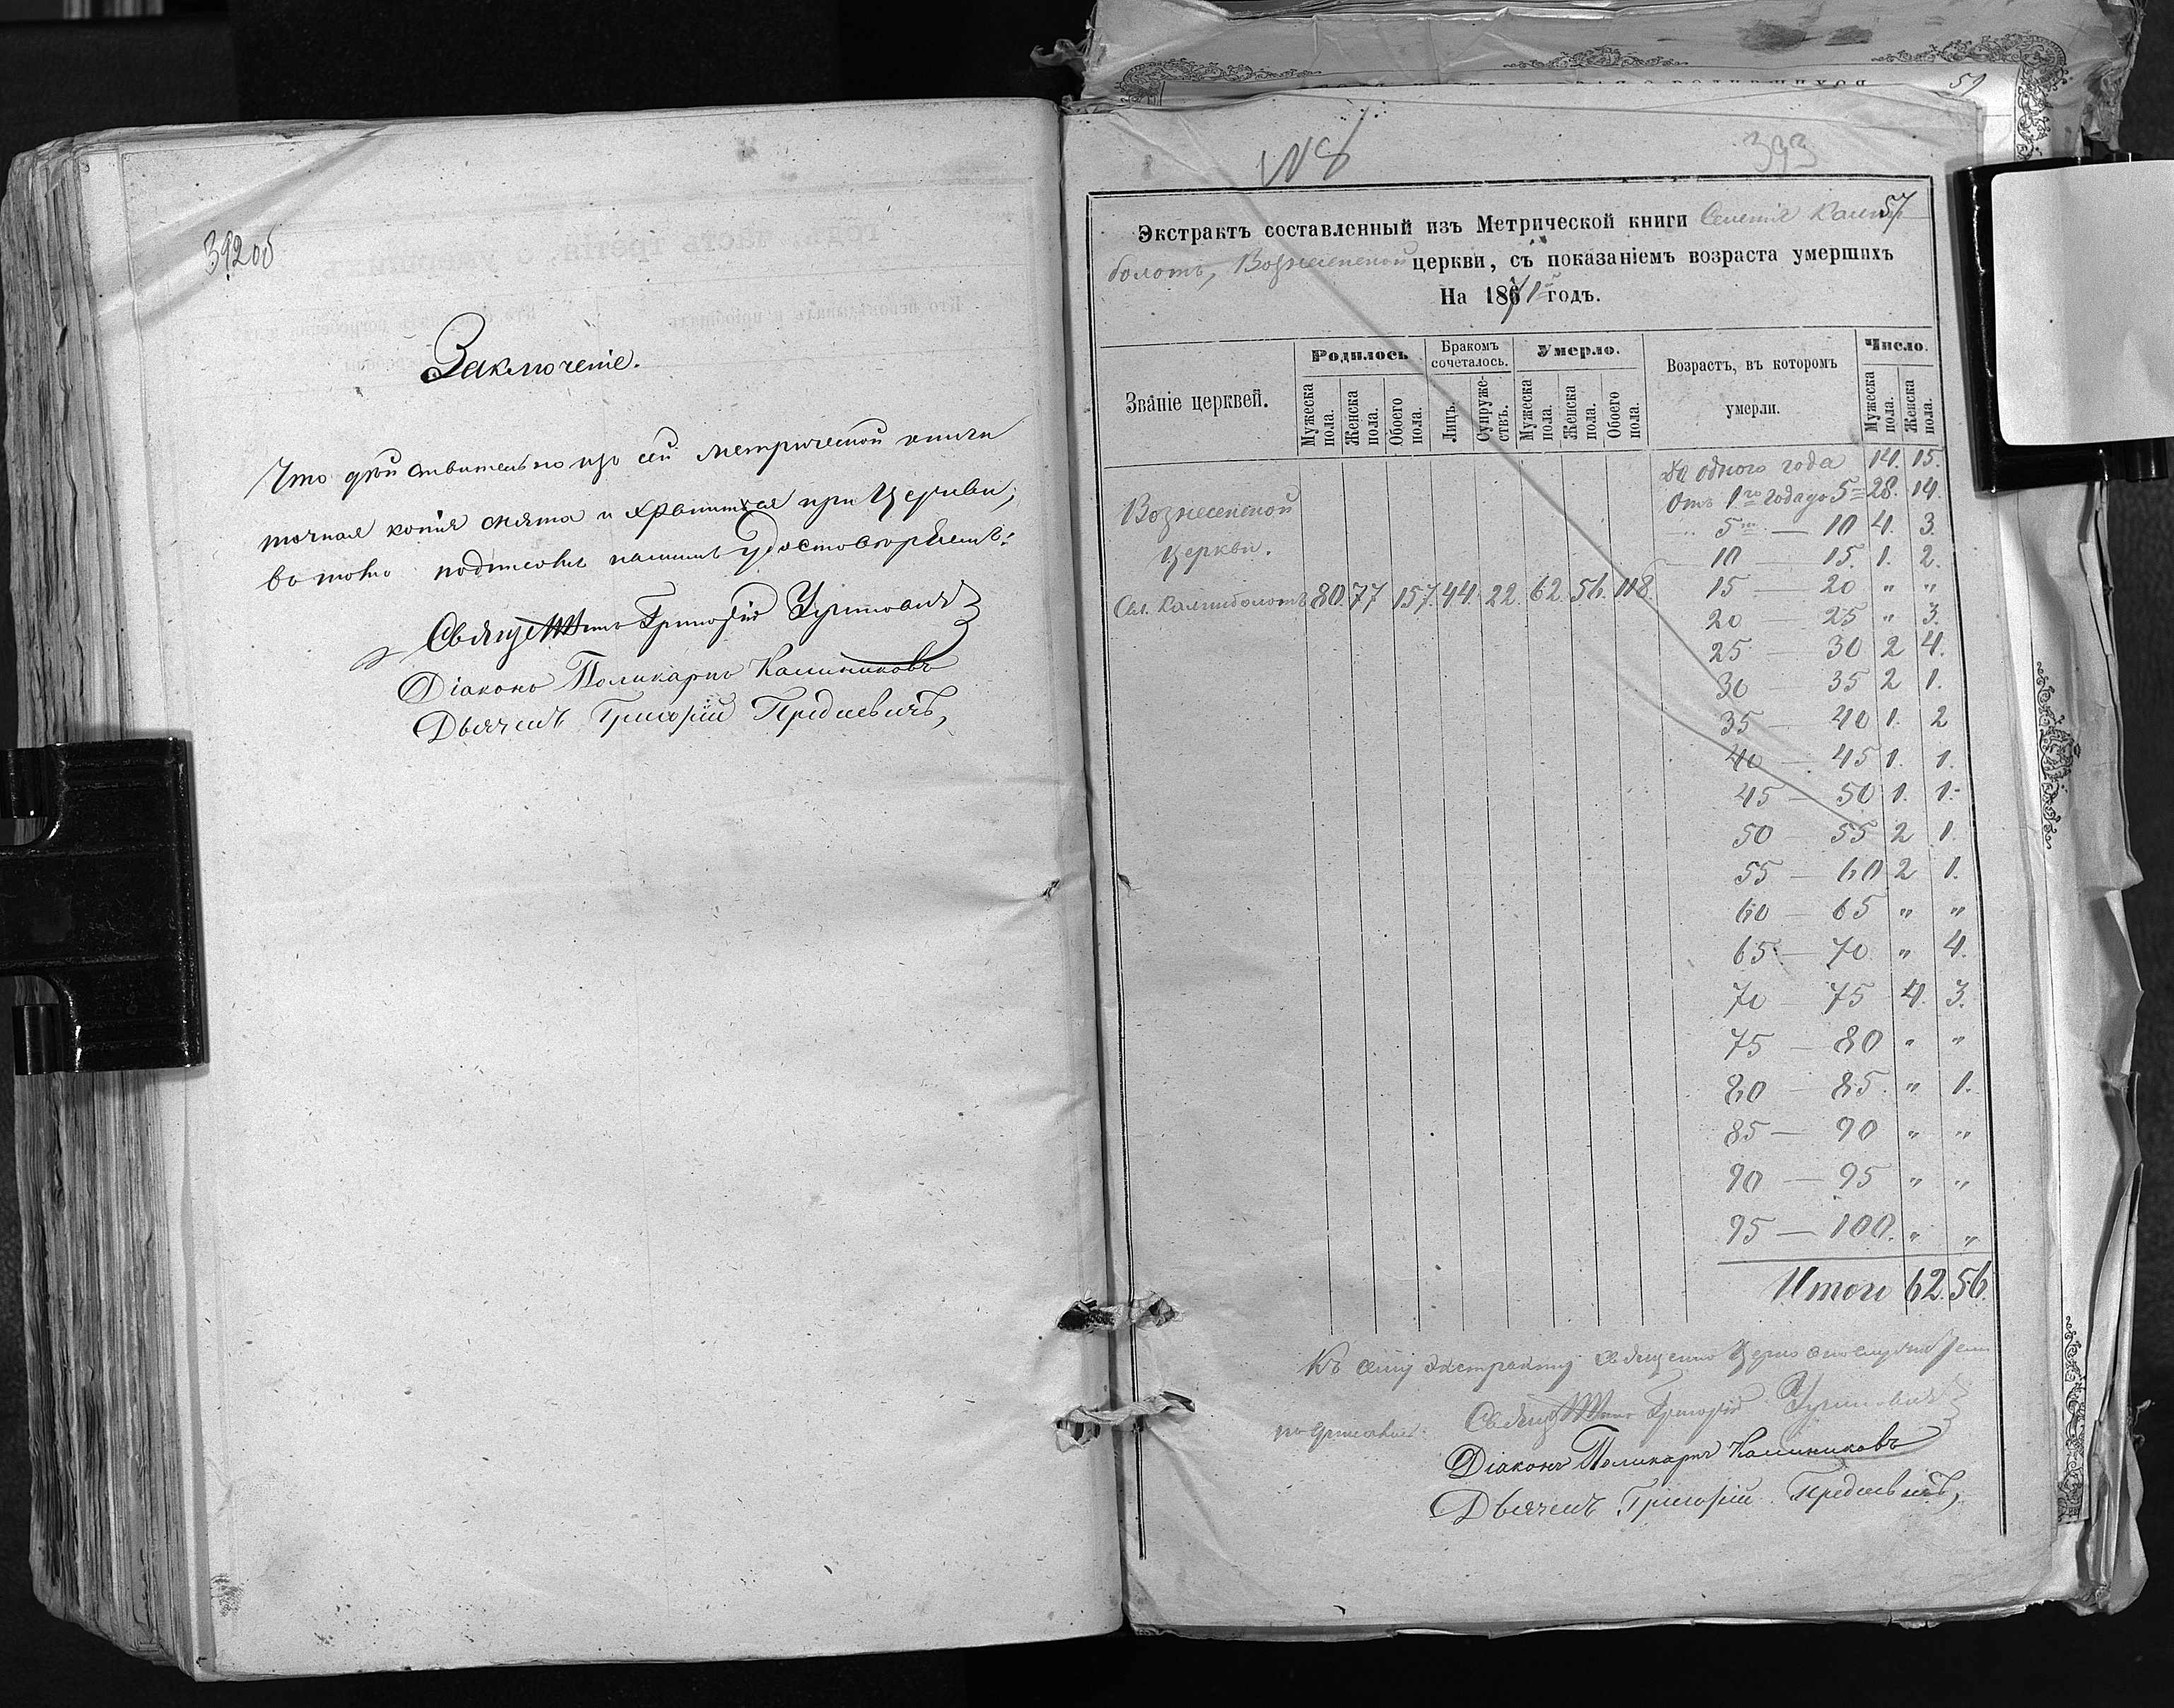 392 об
Заключеніе.
Что действительно изъ сей метрической книги
точная копія снята и хранится при Церкви,
въ томъ подписомъ нашимъ удостоверяемъ:
Священникъ Григорій
Діаконъ Поликарпъ Калинниковъ
Дьячекъ Григорій
59
№ 8
393
57
Экстрактъ составленный изъ Метрической книги Селенія Кални-
болотъ, Вознесенской церкви, съ показаніемъ возраста умершихъ
На 1871й годъ.
Званіе церквей.
Родилось
Бракомъ сочеталось.
Умерло.
Возрастъ, въ которомъ умерли.
Число.
Мужеска пола.
Женска пола.
Обоего пола.
Лицъ.
Супружествъ.
Мужеска пола.
Женска пола.
Обоего пола.
Мужеска пола.
Женска пола.
До одного года 14. 15.
Отъ 1го года до 5 28. 14.
5 — 10 4. 3.
10 — 15. 1. 2.
Вознесенской
Церкви.
Сел. Калниболотъ 80. 77 157. 44. 22. 62. 56. 118.
15 — 20 " "
20 — 25 " 3.
25 — 30 2 4.
30 — 35 2 1.
35 — 40 1. 2
40 — 45 1. 1.
45 — 50 1. 1.
50 — 55 2 1.
55 — 60 2 1.
60 — 65 " "
65 — 70 " 4.
70 — 75 4. 3.
75 — 80 " "
80 — 85. " 1.
85 — 90 " "
90 — 95 " "
95 — 100. " "
Итого 62. 56.
Къ сему экстракту священно церковнослужители
подписались:
Священникъ Григорій
Діаконъ Поликарпъ Калинниковъ
Дьячекъ Григорій